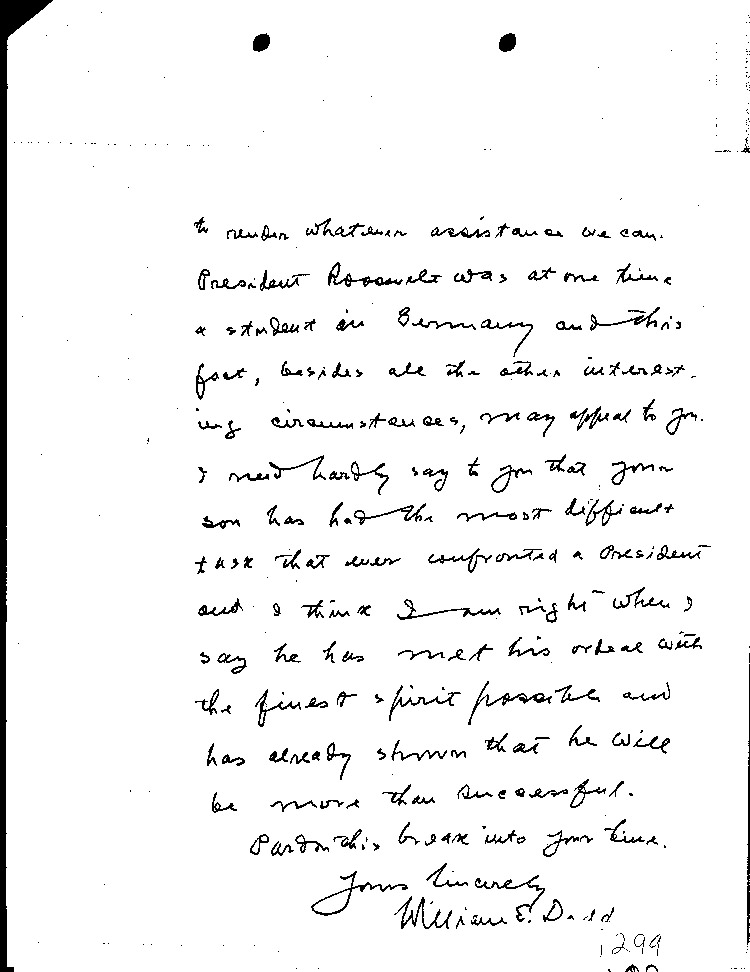 to render whatever assistance we can.
President Roosevelt was at one time
a student in Germany and this
fact, besides all the other interest-
ing circumstances, may appeal to you.
I need hardly say to you that your
son has had the most difficult
task that ever confronted a President
and I think I am right when I
say he has met his ordeal with
the finest spirit possible and
has already shown that he will
be more than successful.
Pardon this break into your time.
Yours sincerely
William E. Dodd
1299